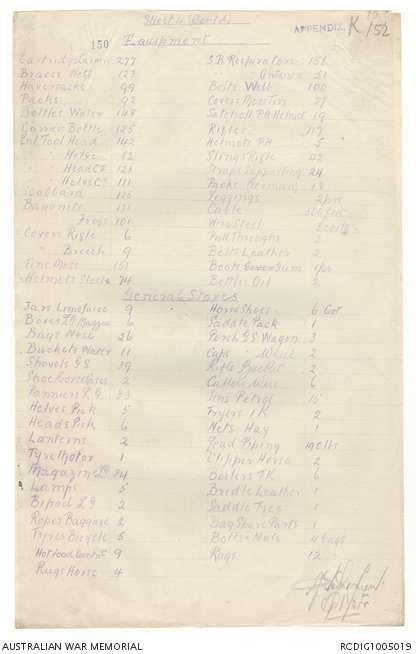 Sheet 4 (Contd)
APPENDIX K/152
150 Equipment
Cartridge Carriers 277
Braces Webb 127
Haversacks 99
Packs 92
Bottles Water 148
Carrier Bottle 125
Ent Tool Head 142
" Helve 12
" Head C" 121
" Helve C" 111
Scabbard 125
Bayonets 131
" Frogs 101
Covers Rifle 6
" Breech 9
Tins Mess 151
Helmets Steel 74
S.B. Respirators 156
" Containers 51
Belts Webb 100
Covers Mess Tin 27
Satchell P.H. Helmet 19
Rifles 117
Helmets P.H 5
Slings Rifle 42
Straps Supporting 24
Packs German 18
Leggings 2 prs
Cable
Wire Steel
Pull Throughs 3
Belts Leather 2
Boots 1 pr
Bottles Oil 2
General Stores
Jars Limejuice 9
Boxes L.G. Magzne 6
Bags Nose 26
Buckets Water 11
Shovels G.S 39
Shoe horse Cases 2
Panniers L.G. 33
Helves Pick 5
Heads Pick 6
Lanterns 2
Tyre Motor 1
Magazine LG 74
Lamps 5
Bipod L.G 2
Ropes Baggage 2
Tyres Bicycle 5
Hot food Contrs 9
Rugs Horse 4
Horse Shoes 6 Cwt
Saddle Pack 1
Perch G.S Wagon 3
Caps Wheel 2
Rifle Bucket 2
Cutters Wire 6
Tins Petrol 15
Fryers T.K 2
Nets Hay 1
Lead Piping 190 lbs
Clipper Horse 2
Boilers T.K 6
Bridle Leather 1
Saddle Tree 1
Bag Spare Parts 1
Bolts & Nuts 4 bags
Rugs 12
AUSTRALIAN WAR MEMORIAL
RCDIG1005019